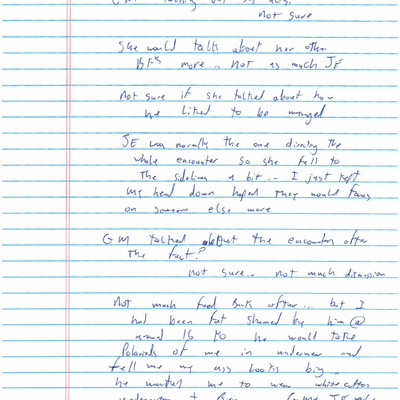 GM talking
not sure
She would talk about her other
BF's more... not as much JE
Not sure if she talked about how
he liked to be massaged
JE was normally the one directing the
whole encounter so she fell to
the sidelines a bit... I just kept
my head down hoped they would focus
on someone else more
GM talked about the encounters after
the fact?
not sure... not much discussion
Not much feed back after... but I
had been fat shamed by him @
around 16 yo he would take
Polaroids of me in underwear and
tell me my ass looks big...
he wanted me to wear white cotton
underwear +